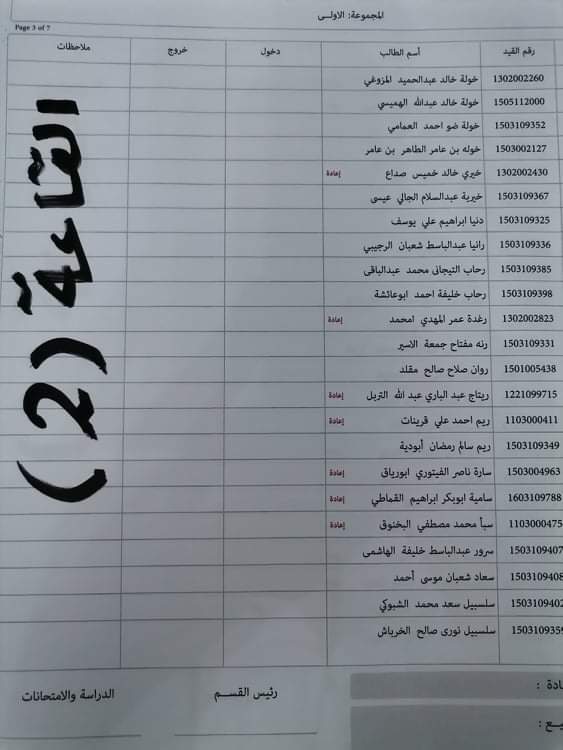 المجموعة: الاولى
Page 3 of 7
رقم القيد أسم الطالب دخول خروج ملاحظات
1302002260 خولة خالد عبدالحميد المزوغي
1505112000 خولة خالد عبدالله الهميسي
1503109352 خولة ضو احمد العمامي
1503002127 خوله بن عامر الطاهر بن عامر
1302002430 خيري خالد خميس صداع إعادة
1503109367 خيرية عبدالسلام الجالي عيسى
1503109325 دنيا ابراهيم علي يوسف
1503109336 رانيا عبدالباسط شعبان الرجيبي
1503109385 رحاب التيجانى محمد عبدالباقى
1503109398 رحاب خليفة احمد ابوعائشة
1302002823 رغدة عمر المهدي امحمد إعادة
1503109331 رنه مفتاح جمعة الاسير
1501005438 روان صلاح صالح مقلد
1221099715 ريتاج عبد الباري عبد الله التربل إعادة
1103000411 ريم احمد علي قرينات إعادة
1503109349 ريم سالم رمضان أبودية
1503004963 سارة ناصر الفيتوري ابورياق إعادة
1603109788 سامية ابوبكر ابراهيم القماطي إعادة
1103000475 سبأ محمد مصطفي البخنوق إعادة
1503109407 سرور عبدالباسط خليفة الهاشمى
1503109408 سعاد شعبان موسى أحمد
1503109402 سلسبيل سعد محمد الشبوكي
1503109359 سلسبيل نورى صالح الخرباش
القاعة (2)
ادة :
يع :
رئيس القســم
الدراسة والامتحانات